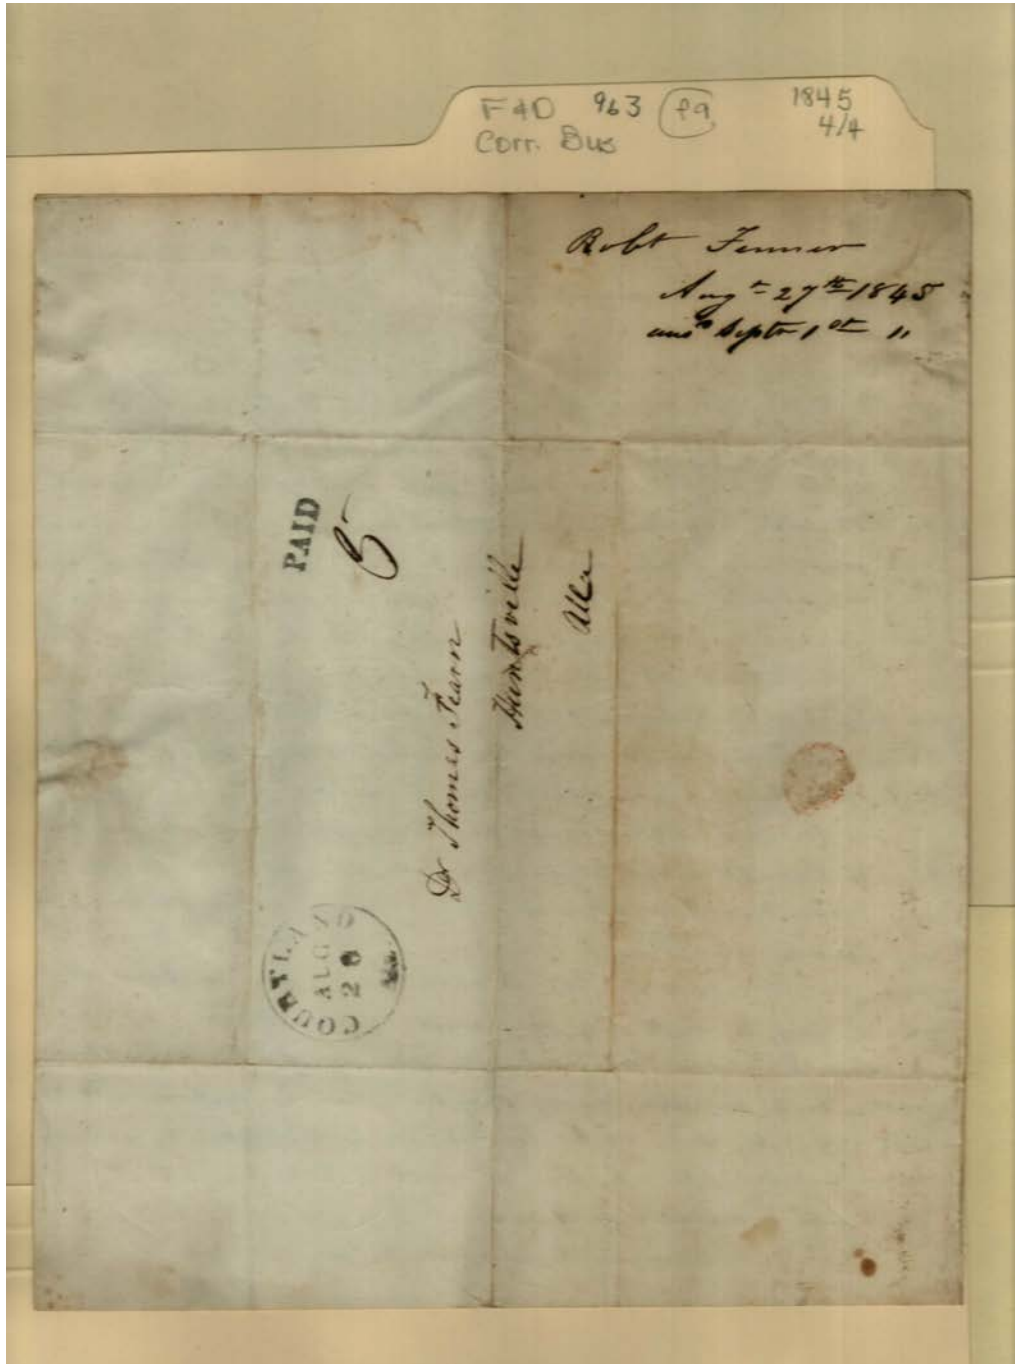 F&D 963 f9 1845
Corr. Bus 4/4
Robt Fenner
Augt 27th 1845
ansd Septr 1st "
PAID
5
Dr Thomas Fearn
Huntsville
Alla
COURTL
AUG
28
Ala.